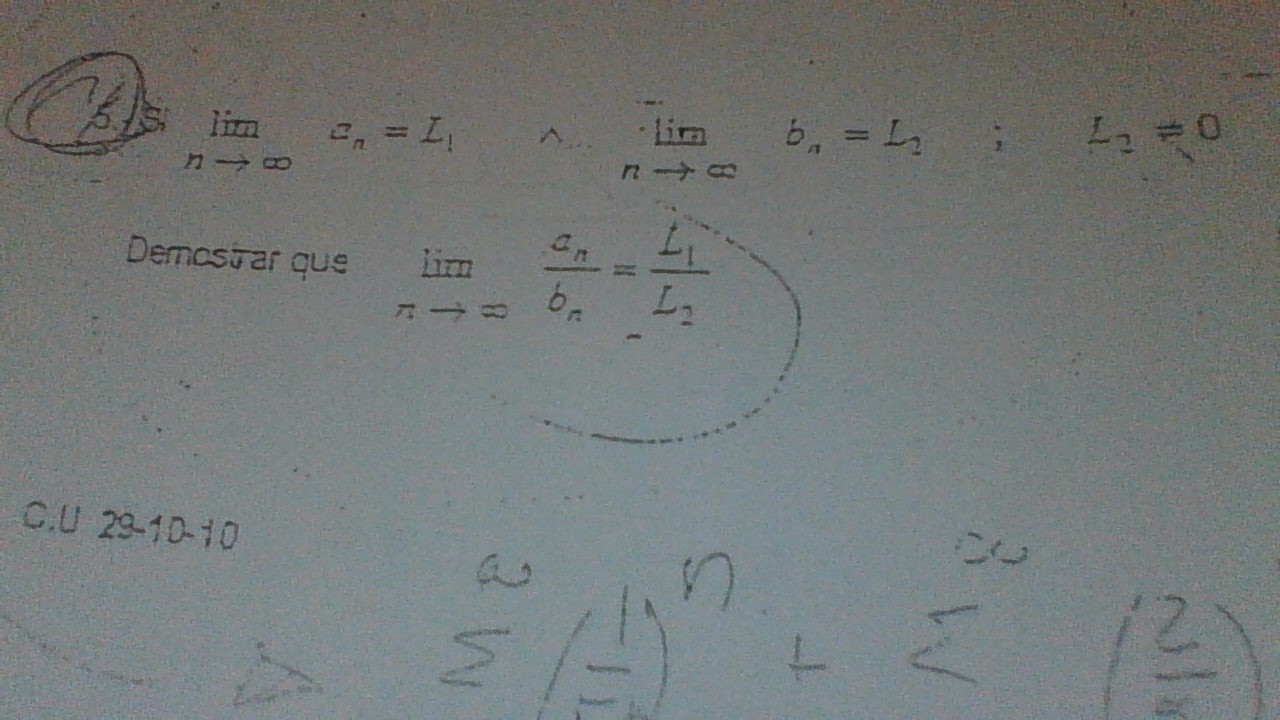 5. Si lim a_n = L_1 ∧ lim b_n = L_2 ; L_2 ≠ 0
n → ∞ n → ∞
Demostrar que lim a_n / b_n = L_1 / L_2
n → ∞
C.U 29-10-10
∞ n ∞
Σ (1/ + Σ (2/